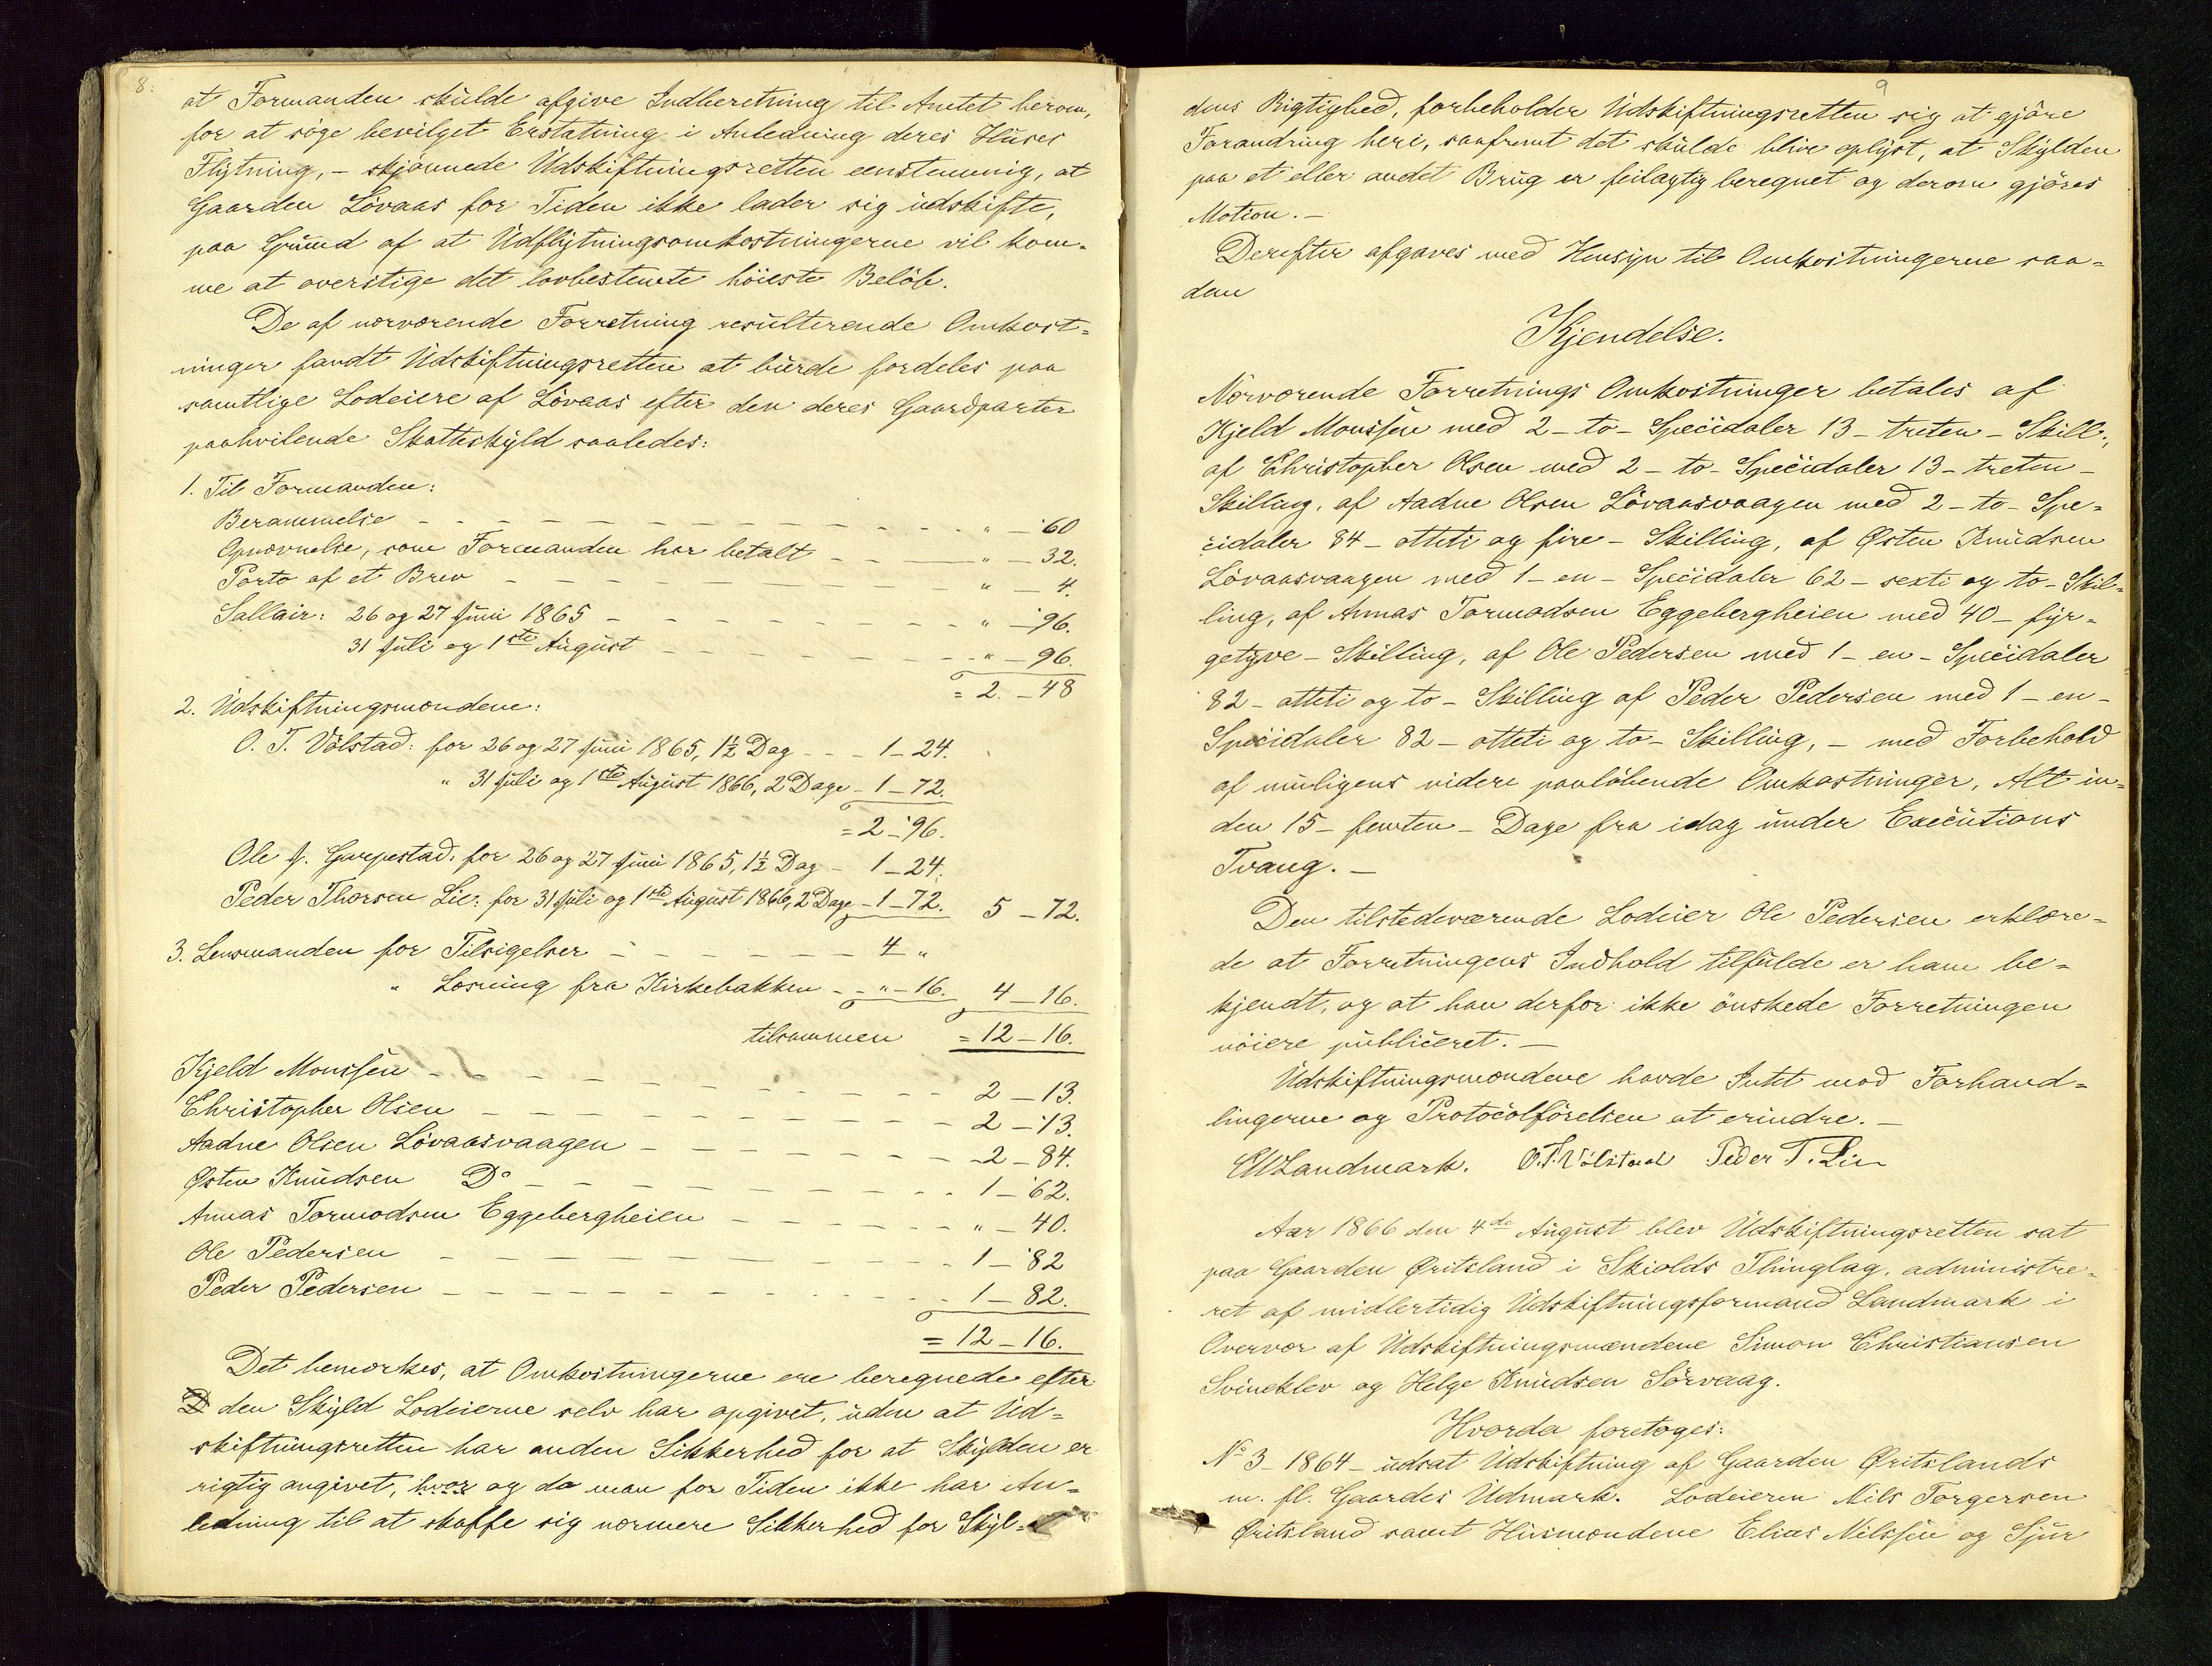 8.
at Formanden skulde afgive Indberetning til Amtet herom,
for at söge bevilget Erstatning i Anledning deres Huses
Flytning, – skjönnede Udskiftningsretten eenstemmig, at
Gaarden Lövaas for Tiden ikke lader sig udskifte,
paa Grund af at Udflytningsomkostningerne vil kom-
me at overstige det lovbestemte höieste Belöb.
De af nærværende Forretning resulterende Omkost=
ninger fandt Udskiftningsretten at burde fordeles paa
samtlige Lodeiere af Lövaas efter den deres Gaardparter
paahvilende Skatteskyld saaledes:
1. Til Formanden:
Berammelse – – – – – – – – – – " – 60
Opnævnelse, som Formanden har betalt – – – " – 32.
Porto af et Brev – – – – – – – – " – 4.
Sallair: 26 og 27 Juni 1865 – – – – – – – " – 96.
31 Juli og 1ste August – – – – – – " – 96.
= 2. – 48
2. Udskiftningsmændene:
O. T. Völstad: for 26 og 27 Juni 1865, 1½ Dag – – – 1 – 24.
" 31 Juli og 1ste August 1866, 2 Dage – 1 – 72.
= 2 – 96.
Ole J. Garpestad: for 26 og 27 Juni 1865, 1½ Dag – 1 – 24.
Peder Thorsen Lie: for 31 Juli og 1ste August 1866, 2 Dage – 1 – 72. 5 – 72.
3. Lensmanden for Tilsigelser – – – – – – 4 "
" Losning fra Kirkebakken – – " – 16. 4 – 16.
tilsammen = 12 – 16.
Kjeld Monsſen – – – – – – – – – – 2 – 13.
Christopher Olsen – – – – – – – – – 2 – 13.
Aadne Olsen Lövaasvaagen – – – – – – – 2 – 84.
Østen Knudsen Do – – – – – – – – 1 – 62.
Annas Tormodsen Eggebergheien – – – – – – " – 40.
Ole Pedersen – – – – – – – – – – 1 – 82
Peder Pedersen – – – – – – – – – – 1 – 82.
= 12 – 16.
Det bemærkes, at Omkostningerne ere beregnede efter
den Skyld Lodeierne selv har opgivet, uden at Ud=
skiftningsretten har anden Sikkerhed for at Skylden er
rigtig angivet, hvor og da man for Tiden ikke har An=
ledning til at skaffe sig nærmere Sikkerhed for Skyl=
9
dens Rigtighed, forbeholder Udskiftningsretten sig at gjöre
Forandring heri, saafremt det skulde blive oplyst, at Skylden
paa et eller andet Brug er feilagtig beregnet og derom gjöres
Motion. –
Derefter afgaves med Hensyn til Omkostningerne saa=
dan
Kjendelse.
Nærværende Forretnings Omkostninger betales af
Kjeld Monsſen med 2 – to – Speciedaler 13 – tretten – Skill.,
af Christopher Olsen med 2 – to – Speciedaler 13 – tretten –
Skilling, af Aadne Olsen Lövaasvaagen med 2 – to – Spe=
ciedaler 84 – otteti og fire – Skilling, af Østen Knudsen
Lövaasvaagen med 1 – en – Speciedaler 62 – sexti og to – Skil=
ling, af Annas Tormodsen Eggebergheien med 40 – fyr=
getyve – Skilling, af Ole Pedersen med 1 – en – Speciedaler
82 – otteti og to – Skilling af Peder Pedersen med 1 – en –
Speciedaler 82 – otteti og to – Skilling, – med Forbehold
af muligens videre paalöbende Omkostninger, Alt in=
den 15 – femten – Dage fra idag under Executions
Tvang. –
Den tilstedeværende Lodeier Ole Pedersen erklære=
de at Forretningens Indhold tilfulde er ham be=
kjendt, og at han derfor ikke önskede Forretningen
nöiere publiceret. –
Udskiftningsmændene havde Intet mod Forhand=
lingerne og Protocolförelsen at erindre. –
EWLandmark. O.T. Völstad Peder T. Lie
Aar 1866 den 4de August blev Udskiftningsretten sat
paa Gaarden Øritsland i Skiolds Thinglag, administre=
ret af midlertidig Udskiftningsformand Landmark i
Overvær af Udskiftningsmændene Simon Christiansen
Svineklev og Helge Knudsen Sörvaag.
Hvorda foretoges:
No 3 – 1864 – udsat Udskiftning af Gaarden Øritslands
m. fl. Gaardes Udmark. Lodeieren Nils Torgersen
Øritsland samt Husmændene Elias Nilsſen og Sjur